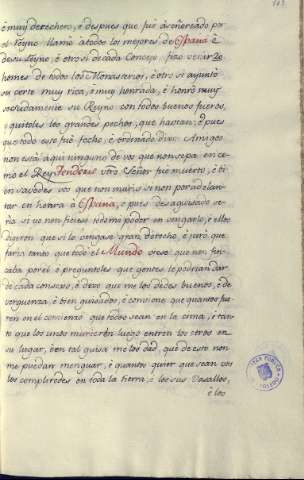 è muy derechero, è despues que fuè aseñoreado por
el Reyno llamò à todos los mejores de España è
de su Reyno è otro si de cada Concejo fizo venir 20
homes de todos los Monasterios, è otro si ayuntò
su corte muy rica, è muy honrada, è honrò muy
su Reyno con todos buenos fueros,
è quitoles los grandes pechos, que hastan: è pues
que todo este fuè fecho, è ordenado dixo: Amigos
non està aqui ninguno de vos que non sepa en co-
mo el Rey
Señor fuè muerto, è
vos que non murió si non por adelan-
tar en honra à España, è pues desaguisado se-
ria si yo non ficiese todo mi poder en vengarlo, è ellos
dixeron que si lo vengase gran derecho, è jurò que
faria tanto que todo el Mundo oviese que non fin-
caba por el è preguntoles que gentes le podrian dar
de cada concexo, è dixo que me los dedes buenos, è de
verguenza, è bien guisados, è conviene que quantos fue-
ren en el comienzo que todos sean en la cima, è tan-
to que los unos murieren luego entren los otros en
su lugar, è en tal guisa me los dad, que de este non
me puedan menguar, è quantos quier que sean vos
los cumpliredes en toda la tierra, è los sus Vasallos,
è los